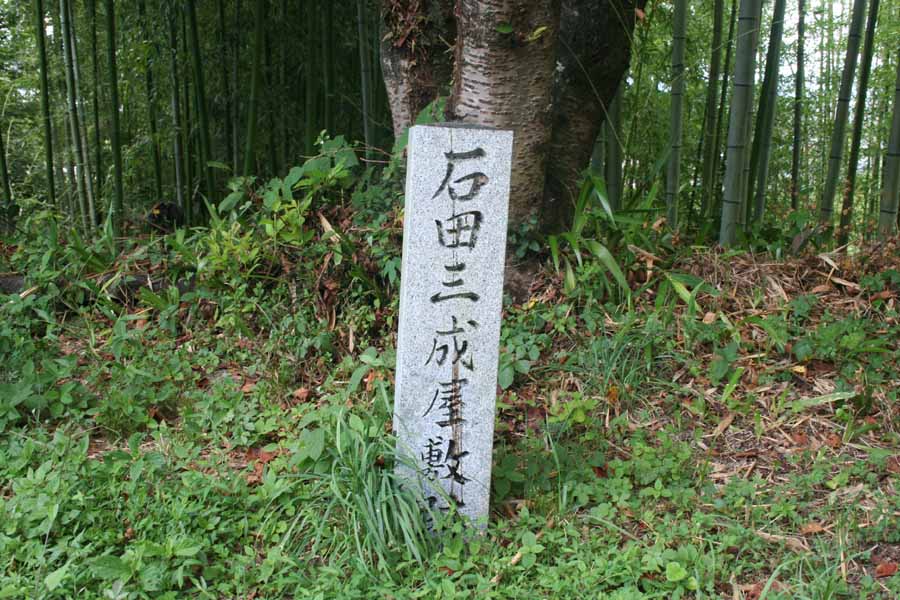 石田三成屋敷